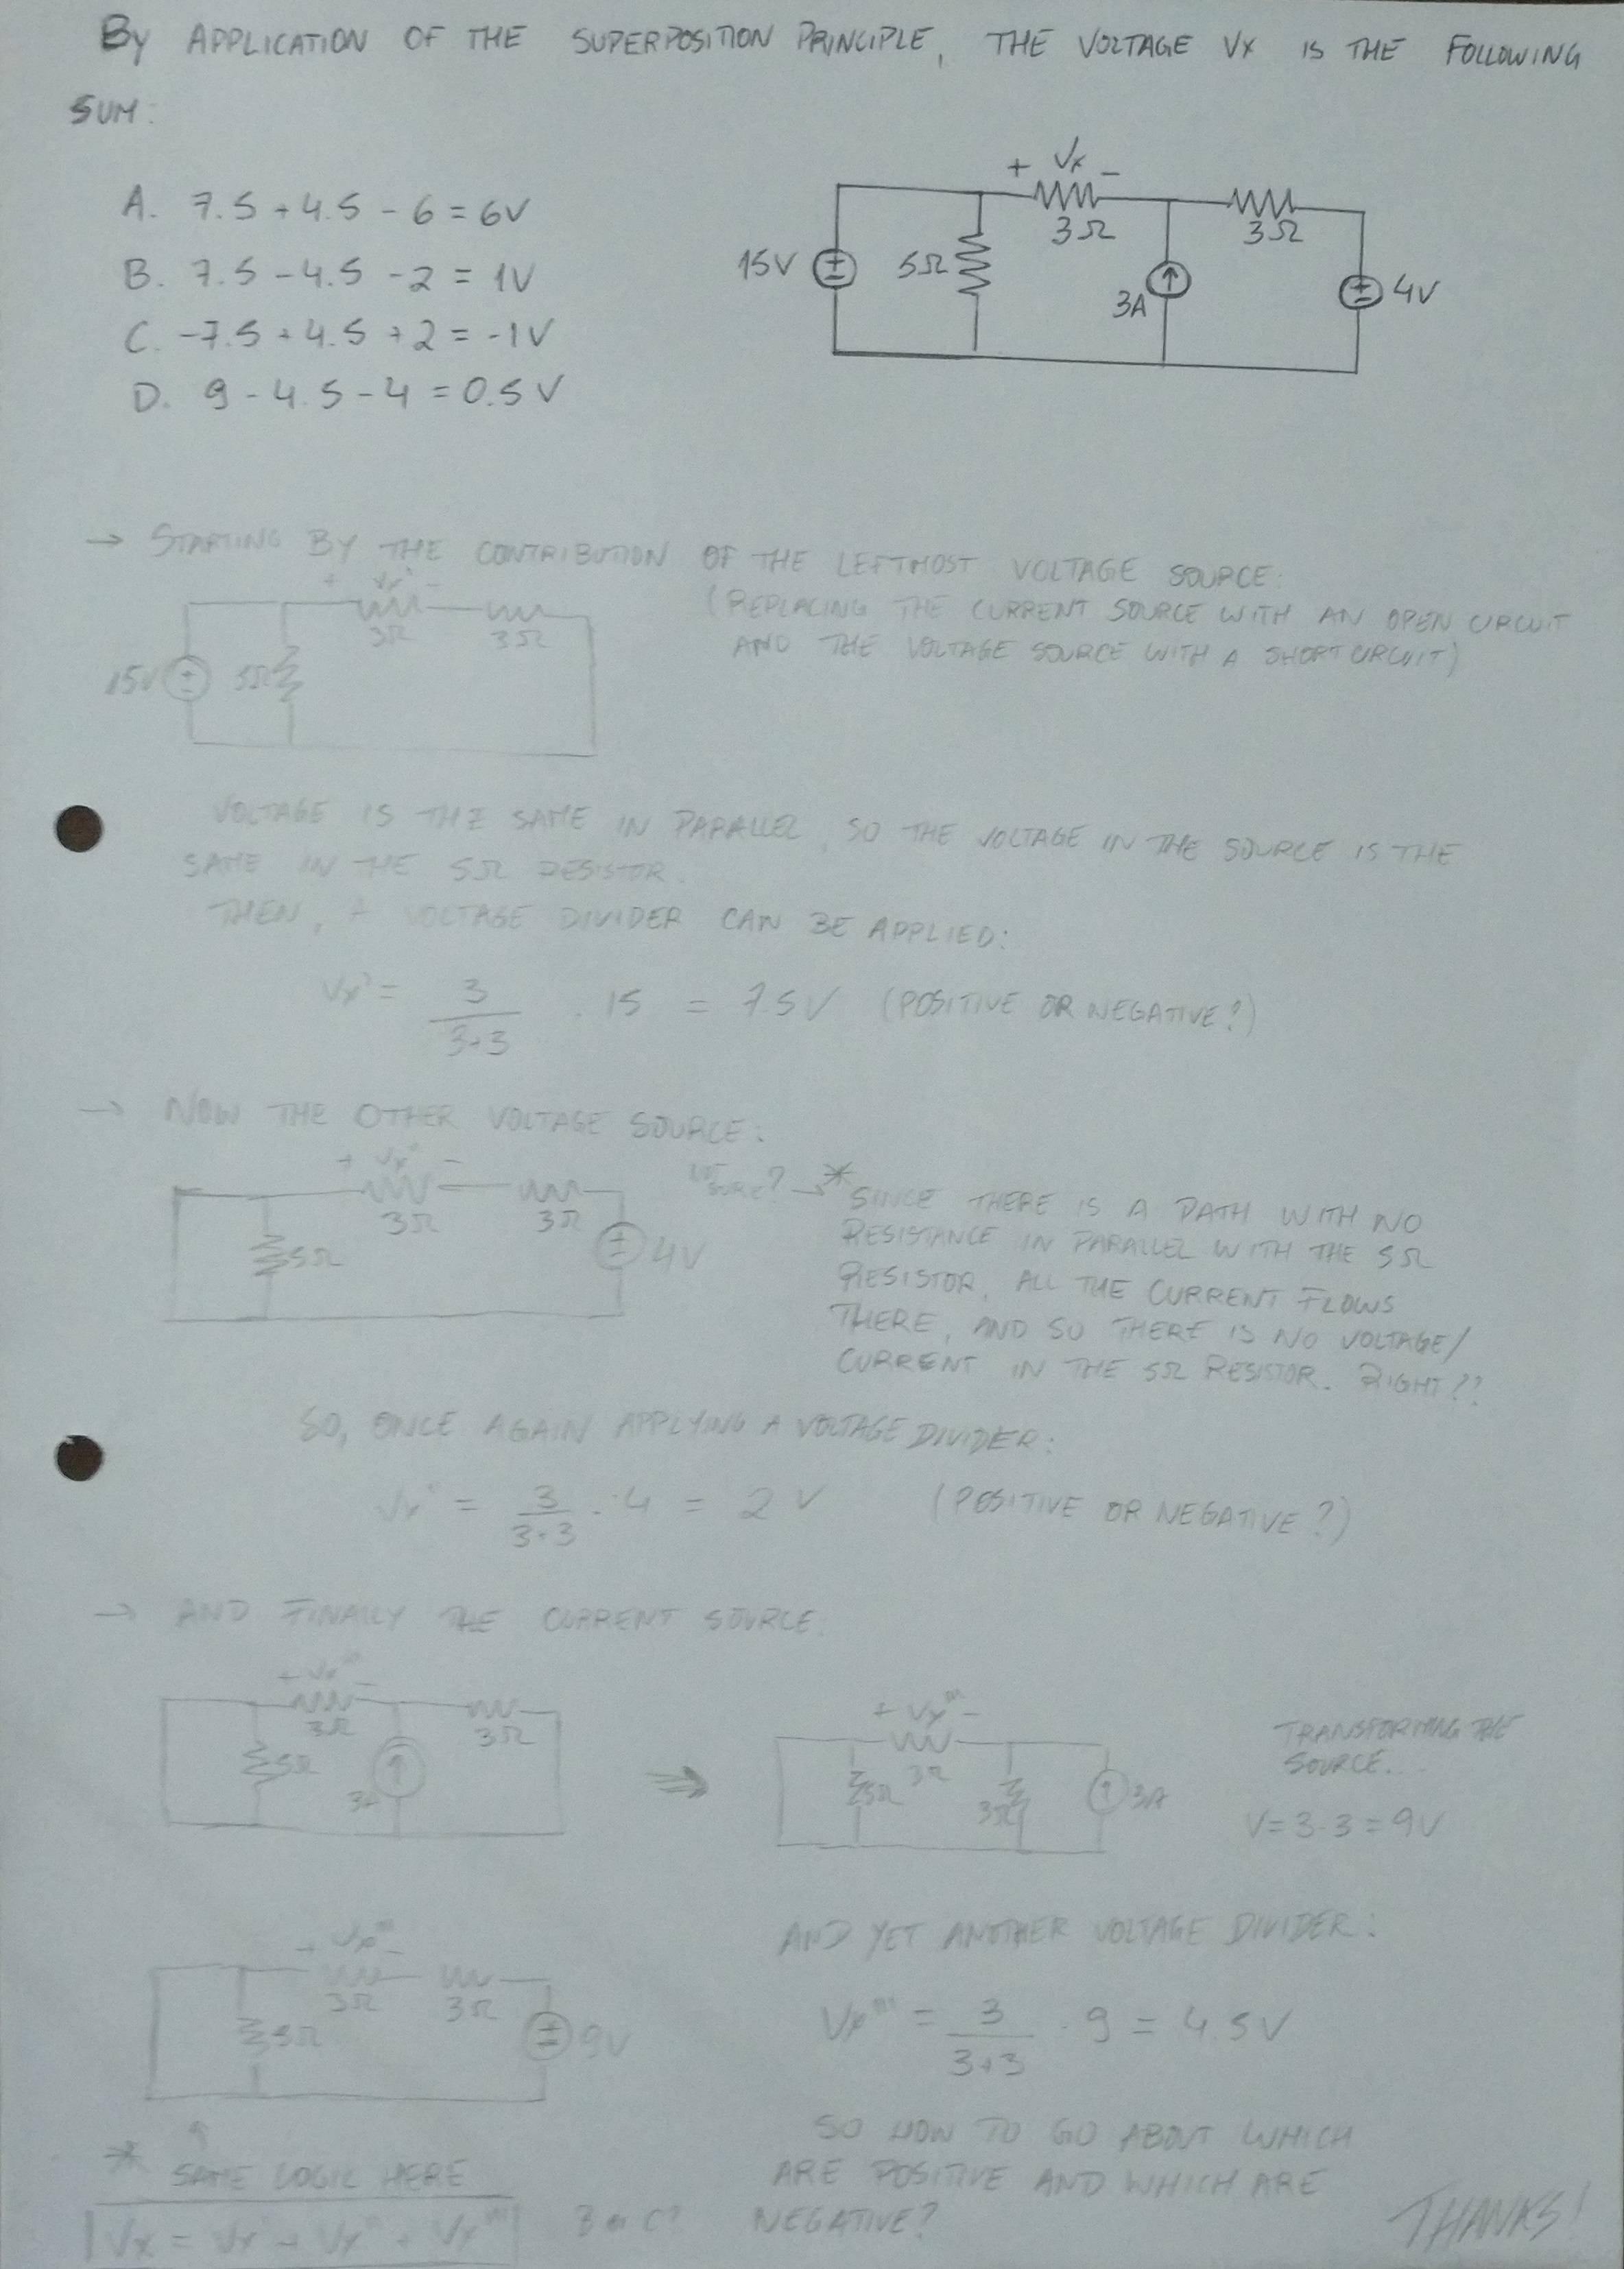 By APPLICATION OF THE SUPERPOSITION PRINCIPLE, THE VOLTAGE VX IS THE FOLLOWING
SUM:
+ Vx -
A. 7.5 + 4.5 - 6 = 6V
3Ω 3Ω
B. 7.5 - 4.5 - 2 = 1V
15V 5Ω 3A 4V
C. -7.5 + 4.5 + 2 = -1V
D. 9 - 4.5 - 4 = 0.5V
→ STARTING BY THE CONTRIBUTION OF THE LEFTMOST VOLTAGE SOURCE:
(REPLACING THE CURRENT SOURCE WITH AN OPEN CIRCUIT
AND THE VOLTAGE SOURCE WITH A SHORT CIRCUIT)
+ Vx' -
3Ω 3Ω
15V 5Ω
VOLTAGE IS THE SAME IN PARALLEL, SO THE VOLTAGE IN THE SOURCE IS THE
SAME IN THE 5Ω RESISTOR.
THEN, A VOLTAGE DIVIDER CAN BE APPLIED:
Vx' = 3/(3+3) · 15 = 7.5V (POSITIVE OR NEGATIVE?)
→ NOW THE OTHER VOLTAGE SOURCE:
+ Vx'' -
3Ω 3Ω
5Ω 4V
SURE? → * SINCE THERE IS A PATH WITH NO
RESISTANCE IN PARALLEL WITH THE 5Ω
RESISTOR, ALL THE CURRENT FLOWS
THERE, AND SO THERE IS NO VOLTAGE/
CURRENT IN THE 5Ω RESISTOR. RIGHT??
SO, ONCE AGAIN APPLYING A VOLTAGE DIVIDER:
Vx'' = 3/(3+3) · 4 = 2V (POSITIVE OR NEGATIVE?)
→ AND FINALLY THE CURRENT SOURCE.
+ Vx''' -
3Ω 3Ω
5Ω 3A
⇒
+ Vx''' -
5Ω 3Ω 3Ω 3A
TRANSFORMING THE
SOURCE...
V = 3·3 = 9V
+ Vx''' -
3Ω 3Ω
5Ω 9V
AND YET ANOTHER VOLTAGE DIVIDER:
Vx''' = 3/(3+3) · 9 = 4.5V
* SAME LOGIC HERE
SO HOW TO GO ABOUT WHICH
ARE POSITIVE AND WHICH ARE
NEGATIVE?
Vx = Vx' + Vx'' + Vx''' B or C?
THANKS!